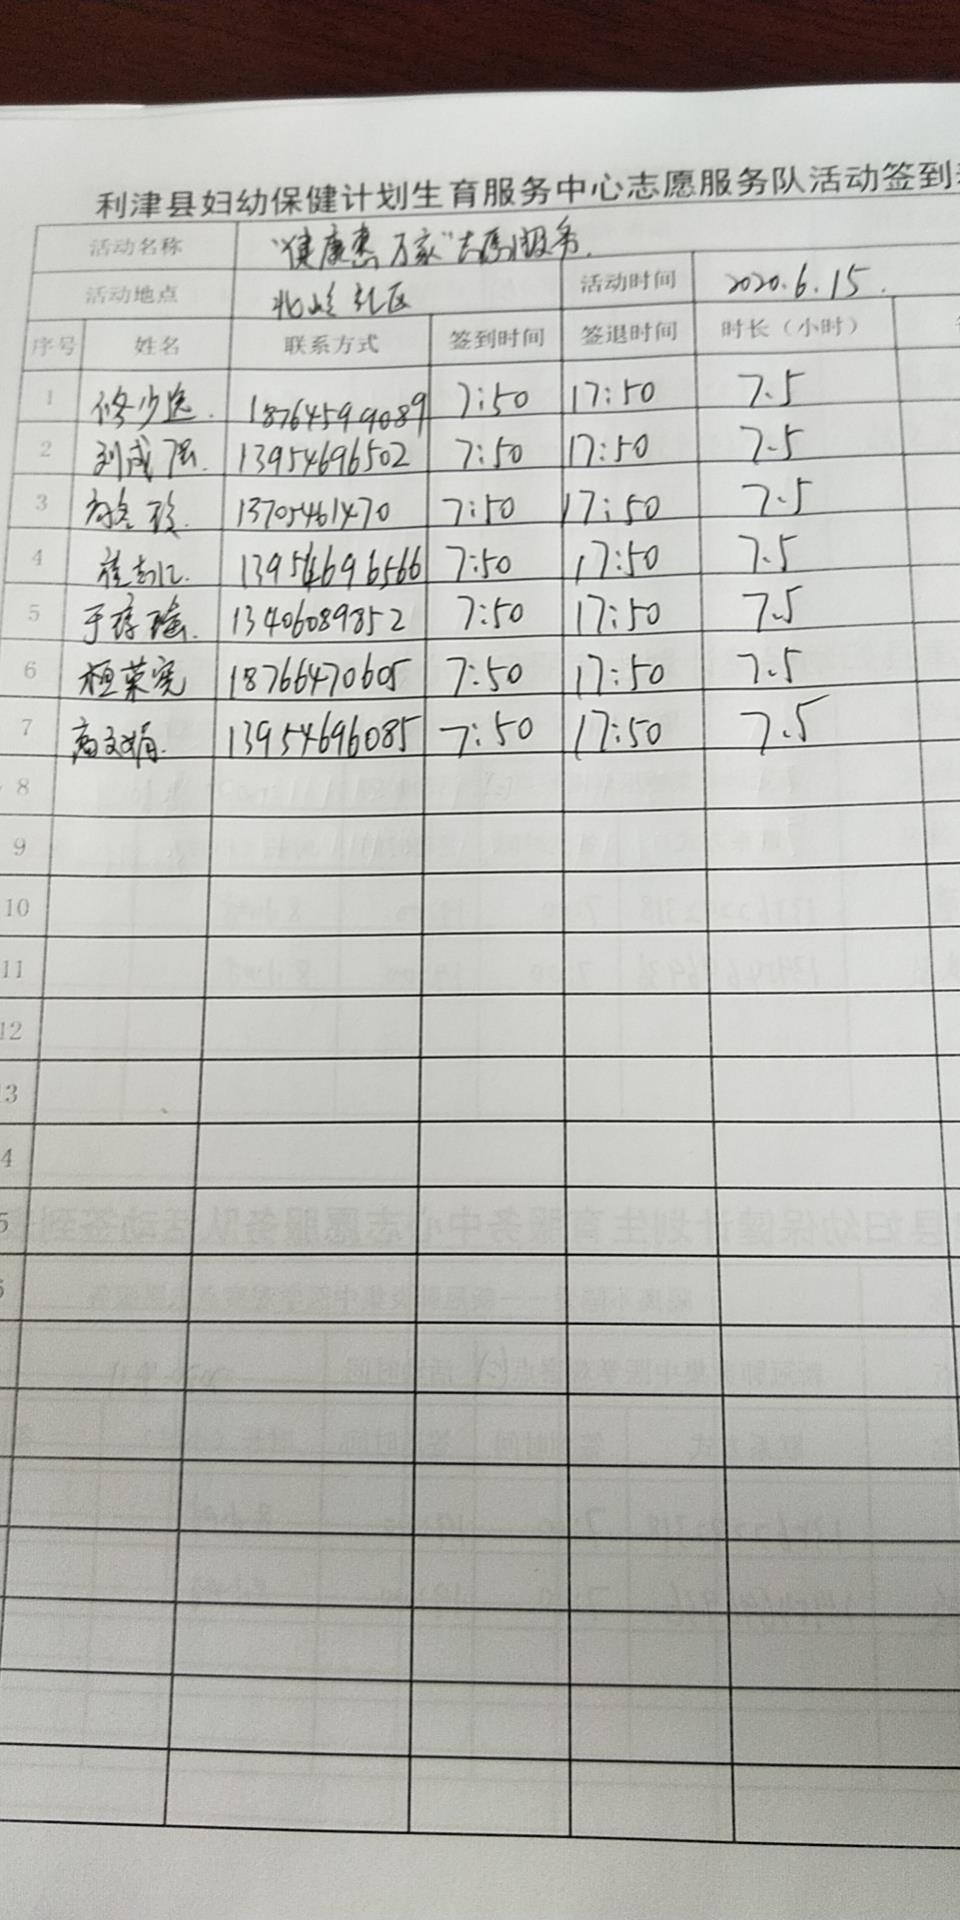 利津县妇幼保健计划生育服务中心志愿服务队活动签到
活动名称 "健康惠万家"志愿服务.
活动地点 北岭社区 活动时间 2020.6.15.
序号 姓名 联系方式 签到时间 签退时间 时长（小时）
1 18764599089 7:50 17:50 7.5
2 刘成强. 13954696502 7:50 17:50 7.5
3 13705461470 7:50 17:50 7.5
4 崔志江. 13954696566 7:50 17:50 7.5
5 于琼瑶. 13406089852 7:50 17:50 7.5
6 桓荣宪 18766470605 7:50 17:50 7.5
7 高文娟. 13954696085 7:50 17:50 7.5
8
9
10
11
12
3
4
5